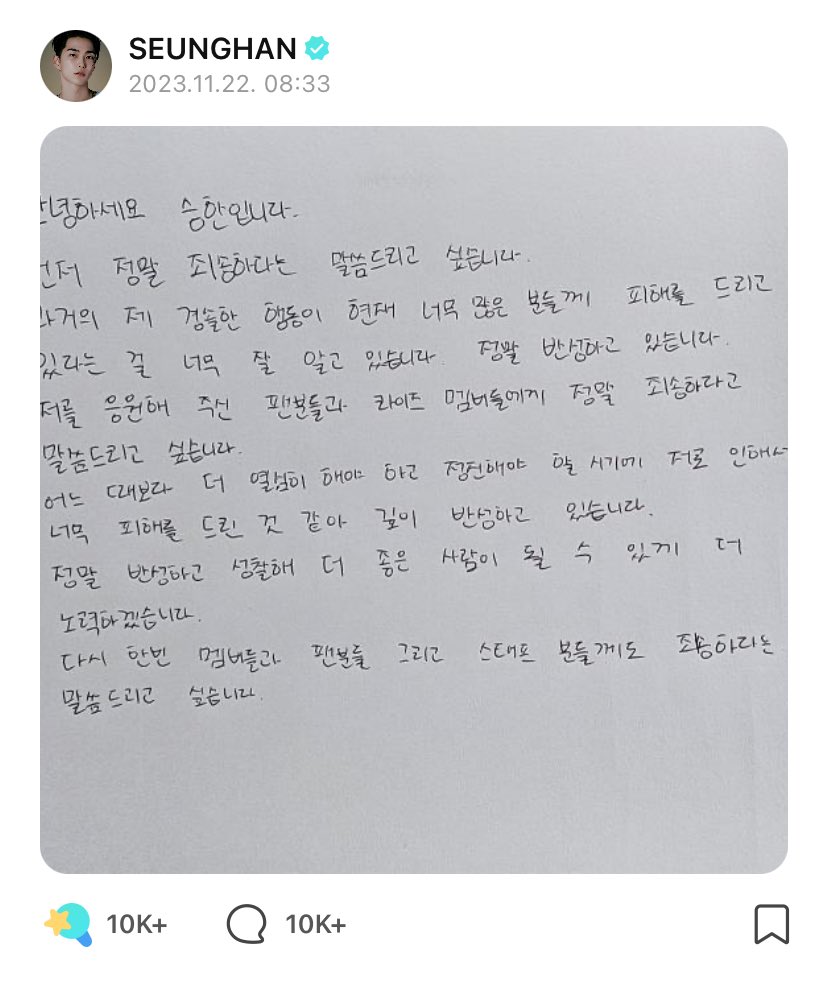 SEUNGHAN
2023.11.22. 08:33
안녕하세요 승한입니다.
먼저 정말 죄송하다는 말씀드리고 싶습니다.
과거의 제 경솔한 행동이 현재 너무 많은 분들께 피해를 드리고
있다는 걸 너무 잘 알고 있습니다. 정말 반성하고 있습니다.
저를 응원해 주신 팬분들과 라이즈 멤버들에게 정말 죄송하다고
말씀드리고 싶습니다.
어느 때보다 더 열심히 해야 하고 정진해야 할 시기에 저로 인해서
너무 피해를 드린 것 같아 깊이 반성하고 있습니다.
정말 반성하고 성찰해 더 좋은 사람이 될 수 있게 더
노력하겠습니다.
다시 한번 멤버들과 팬분들 그리고 스태프 분들께도 죄송하다는
말씀드리고 싶습니다.
10K+ 10K+